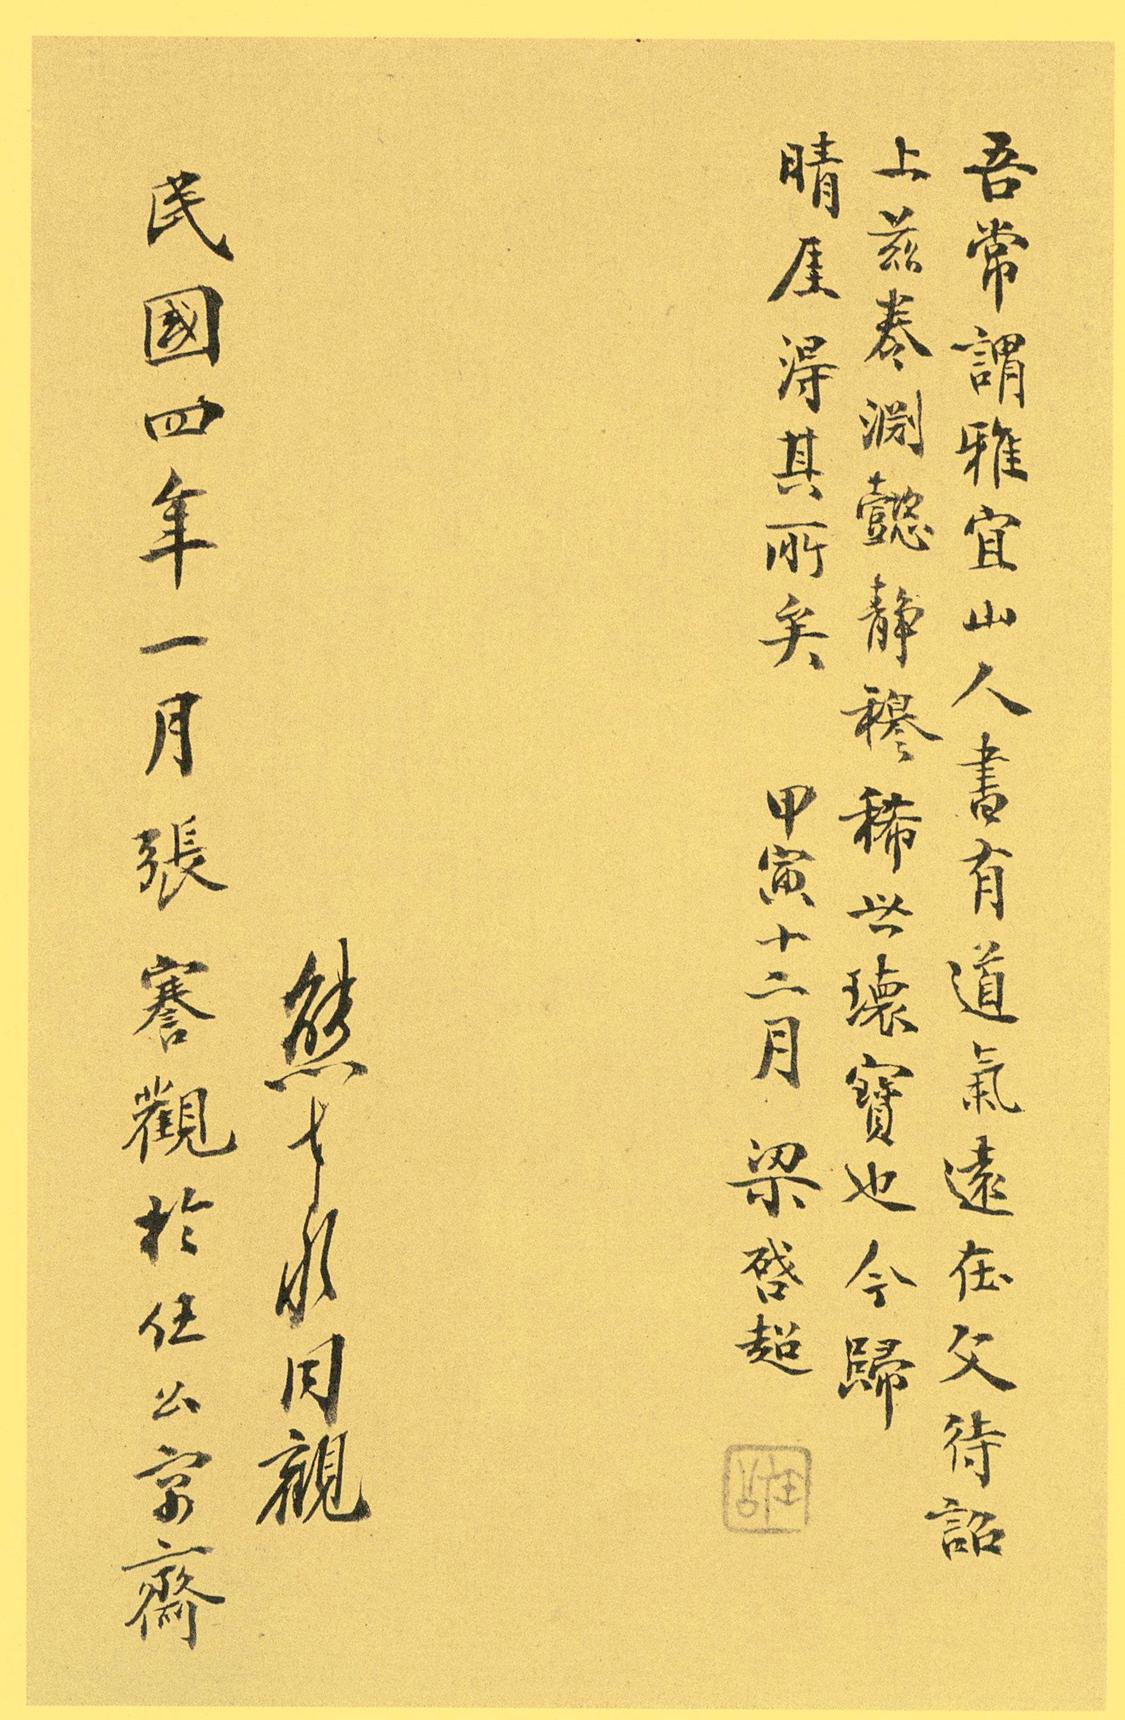 吾常謂雅宜山人書有道氣遠在父待詔
上茲卷淵懿靜穆稀世瓌寶也今歸
晴厓得其所矣 甲寅十二月 梁啓超
任公
熊希齡同觀
民國四年一月張謇觀於任公京齋